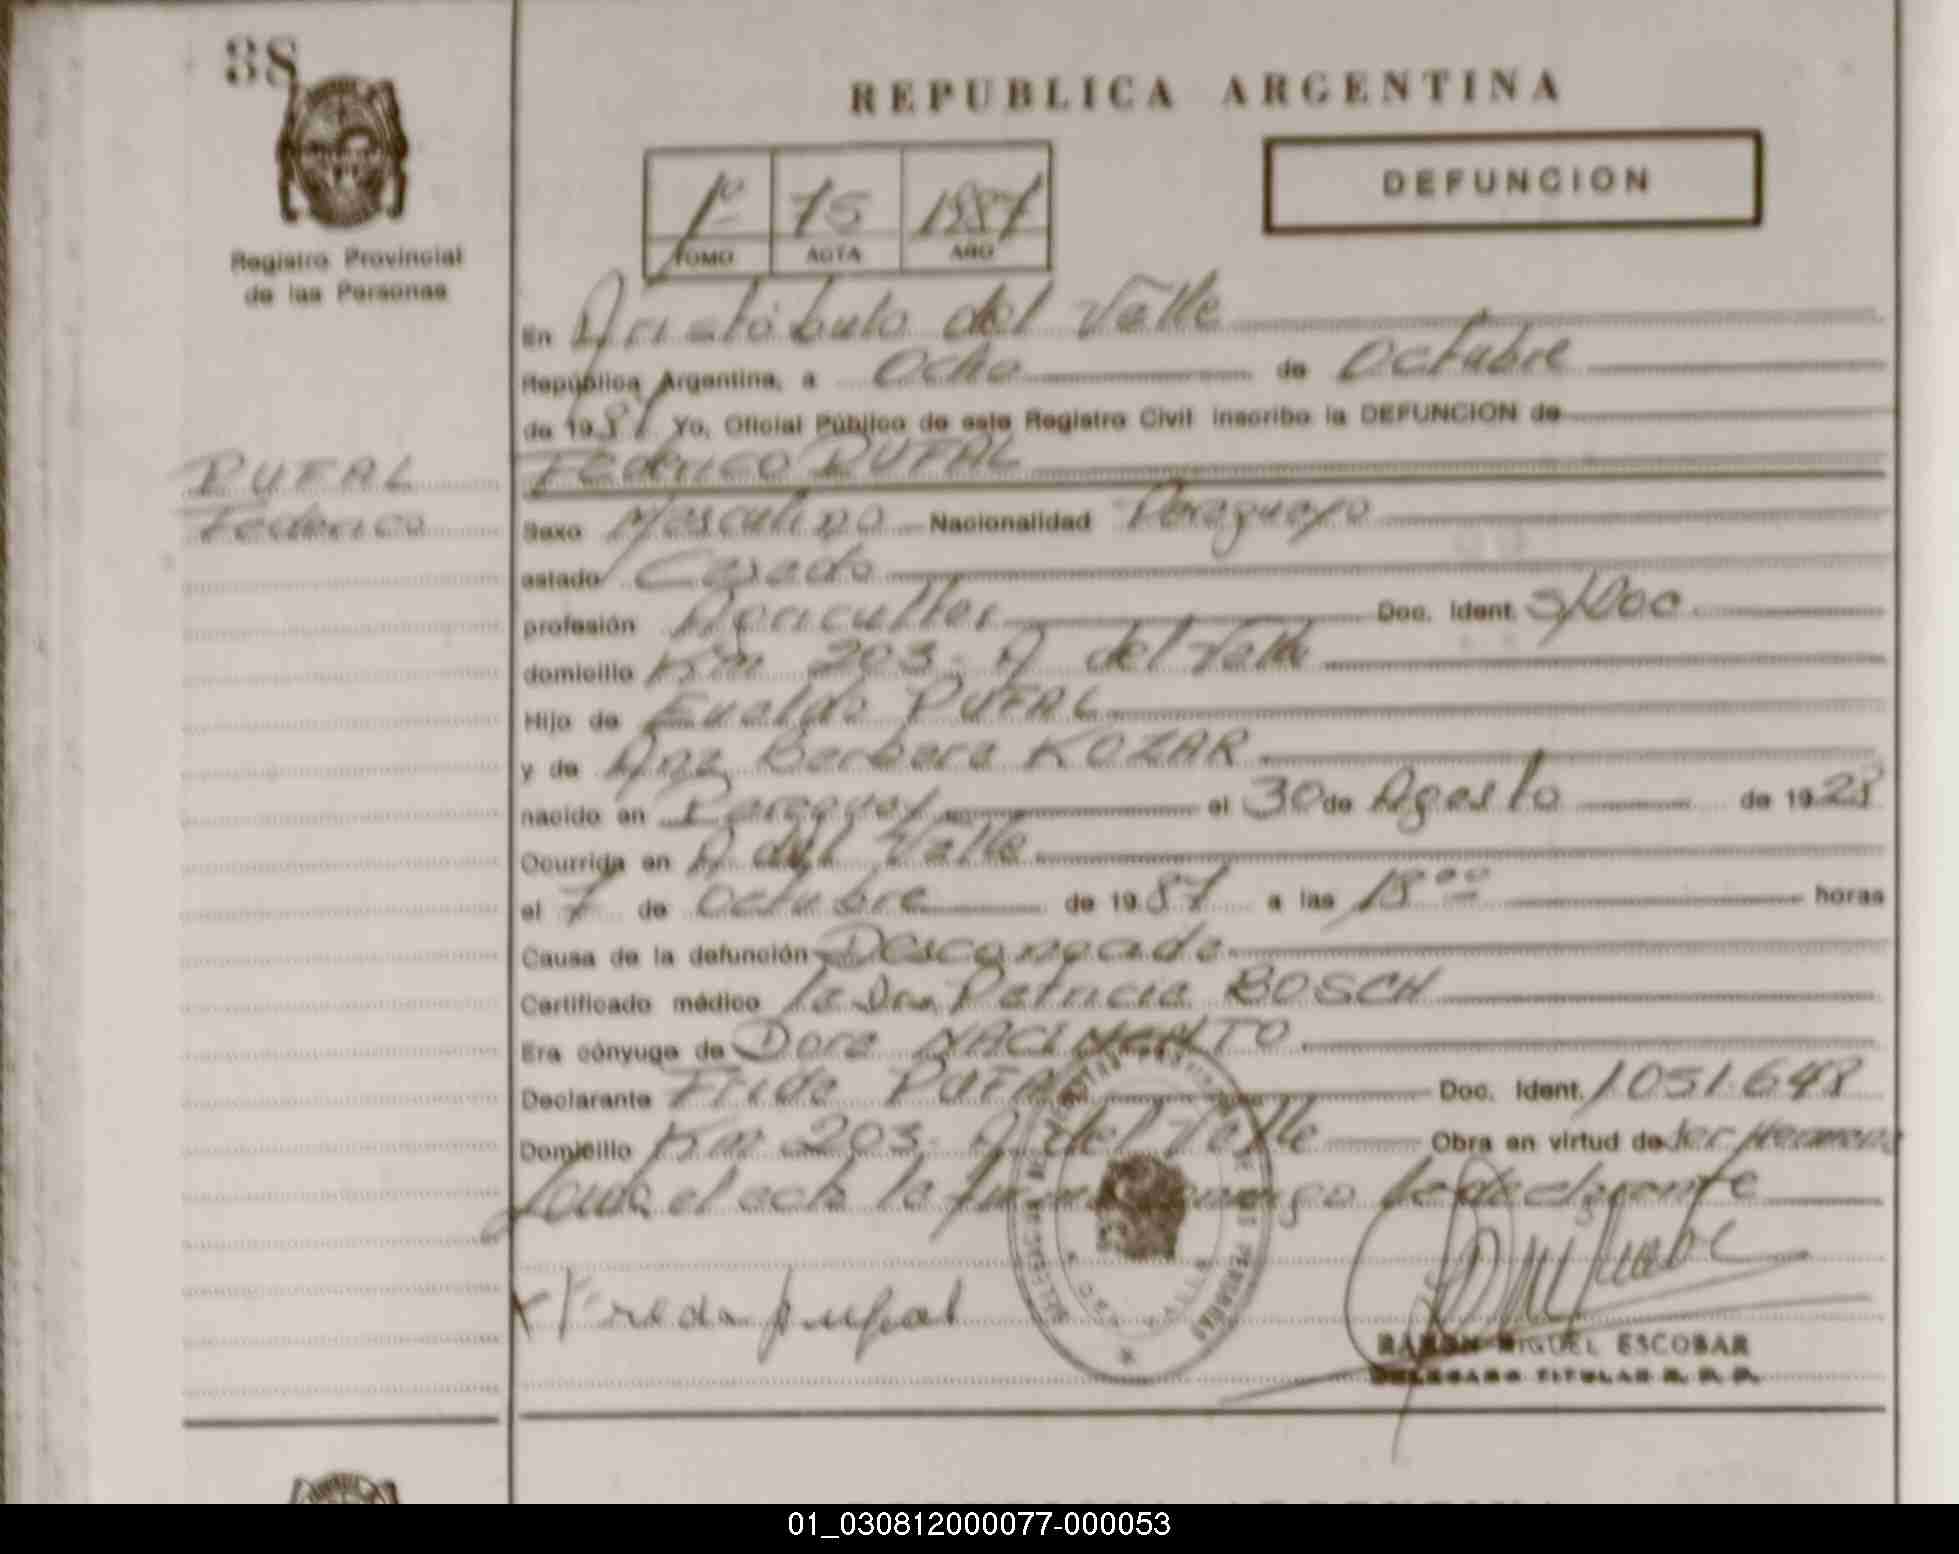 38
Registro Provincial
de las Personas
PUFAL
Federico
REPUBLICA ARGENTINA
DEFUNCION
1º 75 1987
TOMO ACTA AÑO
En Aristóbulo del Valle
República Argentina, a Ocho de Octubre
de 1987 Yo, Oficial Público de este Registro Civil inscribo la DEFUNCION de
Federico PUFAL
Sexo Masculino Nacionalidad Paraguayo
estado Casado
profesión Agricultor Doc. Ident. S/Doc
domicilio Km 203. A del Valle
Hijo de Evaldo PUFAL
y de Ana Barbara KOZAR
nacido en Paraguay el 30 de Agosto de 1928
Ocurrida en A del Valle
el 7 de Octubre de 1987 a las 13ºº horas
Causa de la defunción Desconocida
Certificado médico la Dra. Patricia BOSCH
Era cónyuge de Dora NACIMENTO
Declarante Frida PUFAL Doc. Ident. 1.051.648
Domicilio Km 203. A del Valle Obra en virtud de ser Hermana
Leida el acta la firma conmigo la declarante
Freda pufal
RAMON MIGUEL ESCOBAR
DELEGADO TITULAR R. P. P.
01_030812000077-000053